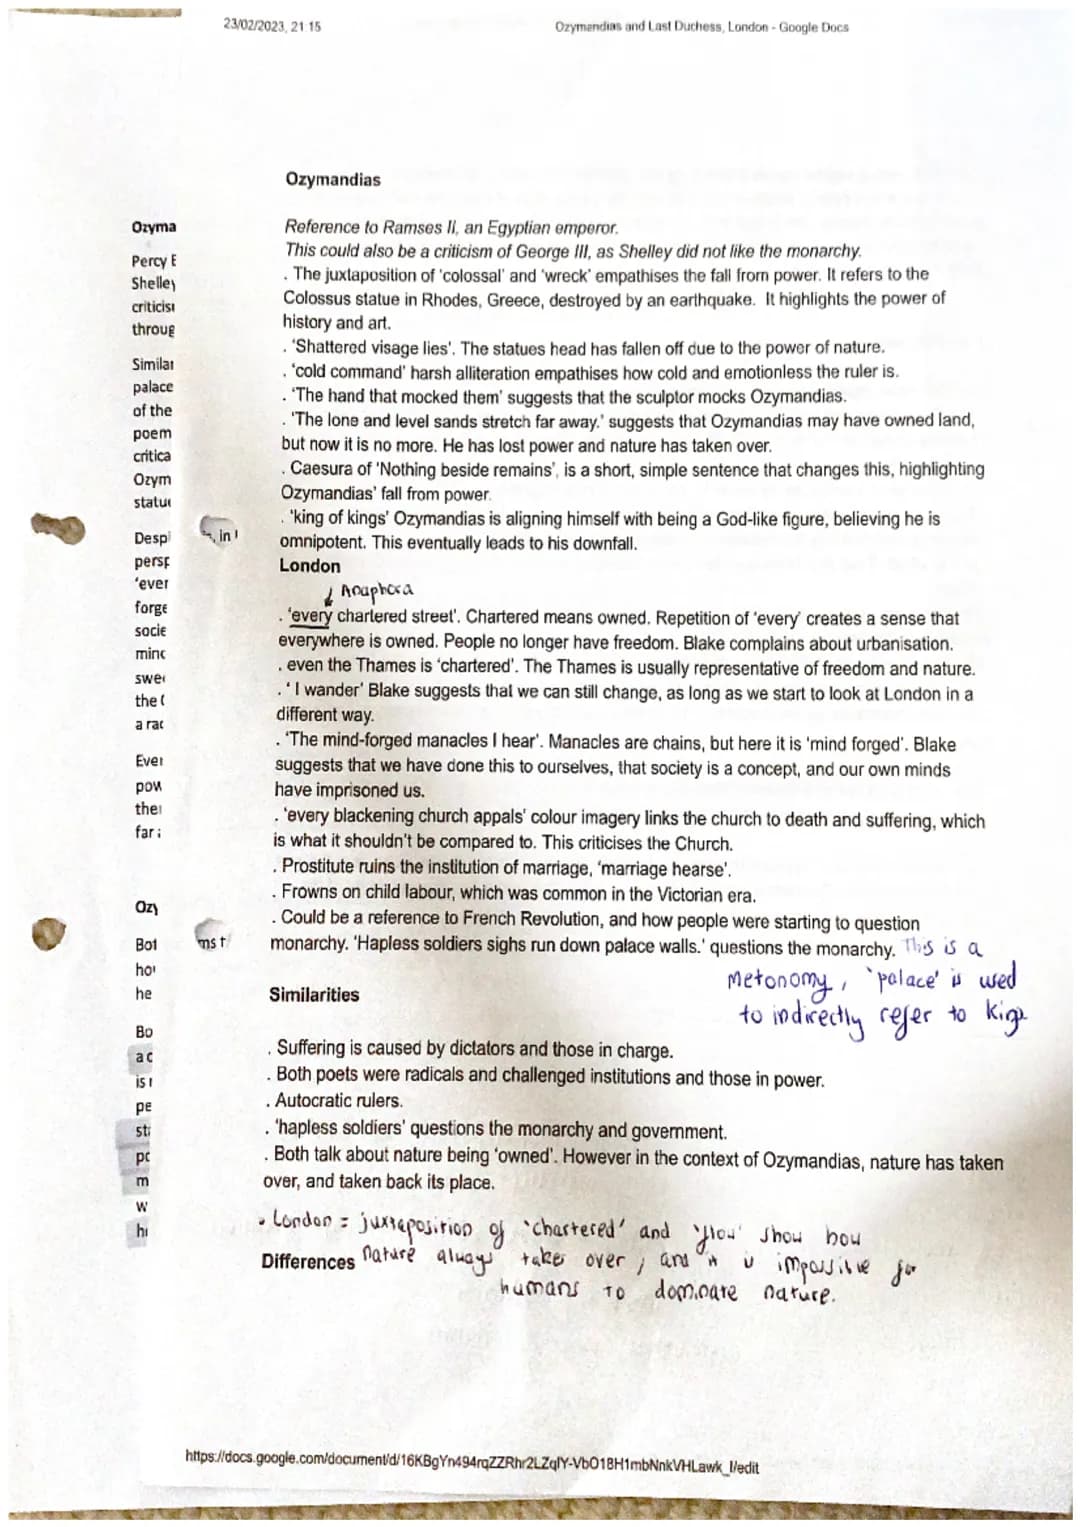 23/02/2023, 21:15
Ozymandias and Last Duchess, London - Google Docs
Ozymandias
Reference to Ramses II, an Egyptian emperor.
This could also be a criticism of George III, as Shelley did not like the monarchy.
. The juxtaposition of 'colossal' and 'wreck' empathises the fall from power. It refers to the
Colossus statue in Rhodes, Greece, destroyed by an earthquake. It highlights the power of
history and art.
. 'Shattered visage lies'. The statues head has fallen off due to the power of nature.
. 'cold command' harsh alliteration empathises how cold and emotionless the ruler is.
. 'The hand that mocked them' suggests that the sculptor mocks Ozymandias.
. 'The lone and level sands stretch far away.' suggests that Ozymandias may have owned land,
but now it is no more. He has lost power and nature has taken over.
. Caesura of 'Nothing beside remains', is a short, simple sentence that changes this, highlighting
Ozymandias' fall from power.
. 'king of kings' Ozymandias is aligning himself with being a God-like figure, believing he is
omnipotent. This eventually leads to his downfall.
London
Anaphora
. 'every chartered street'. Chartered means owned. Repetition of 'every' creates a sense that
everywhere is owned. People no longer have freedom. Blake complains about urbanisation.
. even the Thames is 'chartered'. The Thames is usually representative of freedom and nature.
. ' I wander' Blake suggests that we can still change, as long as we start to look at London in a
different way.
. 'The mind-forged manacles I hear'. Manacles are chains, but here it is 'mind forged'. Blake
suggests that we have done this to ourselves, that society is a concept, and our own minds
have imprisoned us.
. 'every blackening church appals' colour imagery links the church to death and suffering, which
is what it shouldn't be compared to. This criticises the Church.
. Prostitute ruins the institution of marriage, 'marriage hearse'.
. Frowns on child labour, which was common in the Victorian era.
. Could be a reference to French Revolution, and how people were starting to question
monarchy. 'Hapless soldiers sighs run down palace walls.' questions the monarchy. This is a
Metonomy, 'palace' is used
to indirectly refer to king.
Similarities
. Suffering is caused by dictators and those in charge.
. Both poets were radicals and challenged institutions and those in power.
. Autocratic rulers.
. 'hapless soldiers' questions the monarchy and government.
. Both talk about nature being 'owned'. However in the context of Ozymandias, nature has taken
over, and taken back its place.
• London = juxtaposition of 'chartered' and 'flow' show how
Differences nature always takes over, and it is impossible for
humans to dominate nature.
Ozyma
Percy B
Shelley
criticis
throug
Similar
palace
of the
poem
critica
Ozym
statu
Despi
persp
'ever
forge
socie
minc
swe
the (
a rac
Ever
pow
the
far
Ozy
Bot
ho
he
Bo
ac
is
pe
st
po
m
w
h
, in
ms t
https://docs.google.com/document/d/16KBgYn494rqZZRhr2LZqlY-VbO18H1mbNnkVHLawk_I/edit